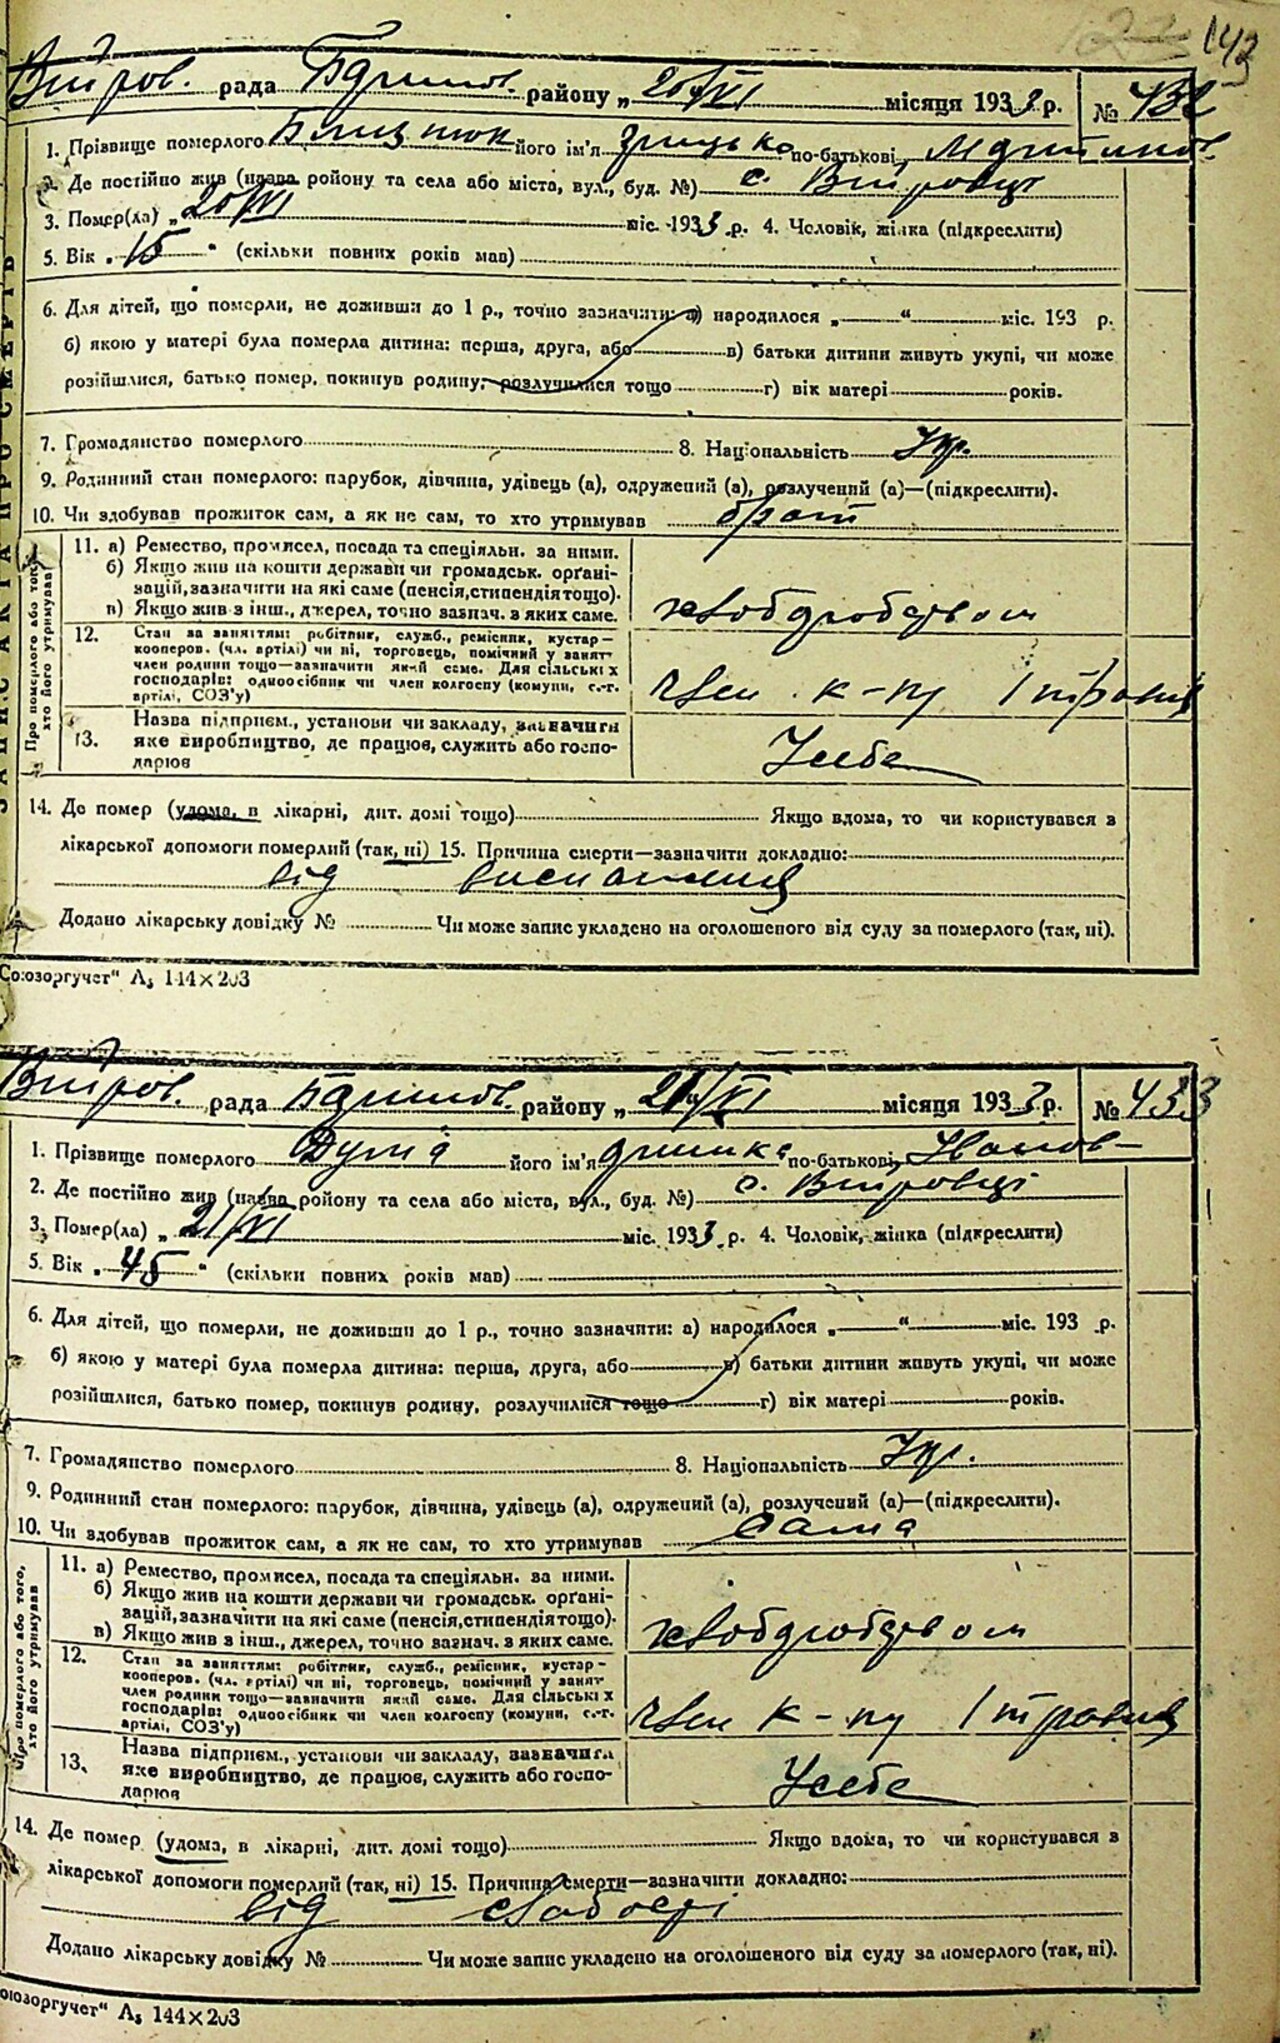 143
Війтров. рада Баришов. району „20/VI місяця 1933 р. № 432
1. Прізвище померлого його ім'я Грицько по-батькові Мартинов.
2. Де постійно жив (назва ройону та села або міста, вул., буд. №) с. Війтровці
3. Помер(ла) „20/VI міс. 1933 р. 4. Чоловік, жінка (підкреслити)
5. Вік „15" (скільки повних років мав)
6. Для дітей, що померли, не доживши до 1 р., точно зазначити: а) народилося „ " міс. 193 р.
б) якою у матері була померла дитина: перша, друга, або в) батьки дитини живуть укупі, чи може
розійшлися, батько помер, покинув родину, розлучилися тощо г) вік матері років.
7. Громадянство померлого 8. Національність Укр.
9. Родинний стан померлого: парубок, дівчина, удівець (а), одружений (а), розлучений (а)—(підкреслити).
10. Чи здобував прожиток сам, а як не сам, то хто утримував брат
ЗАПИС АКТА ПРО СМЕРТЬ
Про померлого або того, хто його утримував
11. а) Ремество, промисел, посада та спеціяльн. за ними.
б) Якщо жив на кошти держави чи громадськ. органі-
зацій, зазначити на які саме (пенсія, стипендія тощо).
в) Якщо жив з інш., джерел, точно зазнач. з яких саме.
хлібороб
12. Стан за заняттям: робітник, служб., ремісник, кустар—
кооперов. (чл. артілі) чи ні, торговець, помічний у занят
член родини тощо—зазначити який саме. Для сільських
господарів: одноосібник чи член колгоспу (комуни, с.-г.
артілі, СОЗ'у)
член к-пу 1 травня
13. Назва підприєм., установи чи закладу, зазначити
яке виробництво, де працює, служить або госпо-
дарює
У себе
14. Де помер (удома, в лікарні, дит. домі тощо) Якщо вдома, то чи користувався з
лікарської допомоги померлий (так, ні) 15. Причина смерти—зазначити докладно:
від виснаження
Додано лікарську довідку № Чи може запис укладено на оголошеного від суду за померлого (так, ні).
Союзоргучет" А₅ 144×203
Війтров. рада Баришов. району „21/VI місяця 1933 р. № 433
1. Прізвище померлого Дума його ім'я по-батькові Іванов—
2. Де постійно жив (назва ройону та села або міста, вул., буд. №) с. Війтровці
3. Помер(ла) „21/VI міс. 1933 р. 4. Чоловік, жінка (підкреслити)
5. Вік „45" (скільки повних років мав)
6. Для дітей, що померли, не доживши до 1 р., точно зазначити: а) народилося „ " міс. 193 р.
б) якою у матері була померла дитина: перша, друга, або в) батьки дитини живуть укупі, чи може
розійшлися, батько помер, покинув родину, розлучилися тощо г) вік матері років.
7. Громадянство померлого 8. Національність Укр.
9. Родинний стан померлого: парубок, дівчина, удівець (а), одружений (а), розлучений (а)—(підкреслити).
10. Чи здобував прожиток сам, а як не сам, то хто утримував сама
Про померлого або того, хто його утримував
11. а) Ремество, промисел, посада та спеціяльн. за ними.
б) Якщо жив на кошти держави чи громадськ. органі-
зацій, зазначити на які саме (пенсія, стипендія тощо).
в) Якщо жив з інш., джерел, точно зазнач. з яких саме.
12. Стан за заняттям: робітник, служб., ремісник, кустар—
кооперов. (чл. артілі) чи ні, торговець, помічний у занят
член родини тощо—зазначити який саме. Для сільських
господарів: одноосібник чи член колгоспу (комуни, с.-г.
артілі, СОЗ'у)
член к-пу 1 травня
13. Назва підприєм., установи чи закладу, зазначити
яке виробництво, де працює, служить або госпо-
дарює
У себе
14. Де помер (удома, в лікарні, дит. домі тощо) Якщо вдома, то чи користувався з
лікарської допомоги померлий (так, ні) 15. Причина смерти—зазначити докладно:
від слабості
Додано лікарську довідку № Чи може запис укладено на оголошеного від суду за померлого (так, ні).
оюзоргучет" А₅ 144×203